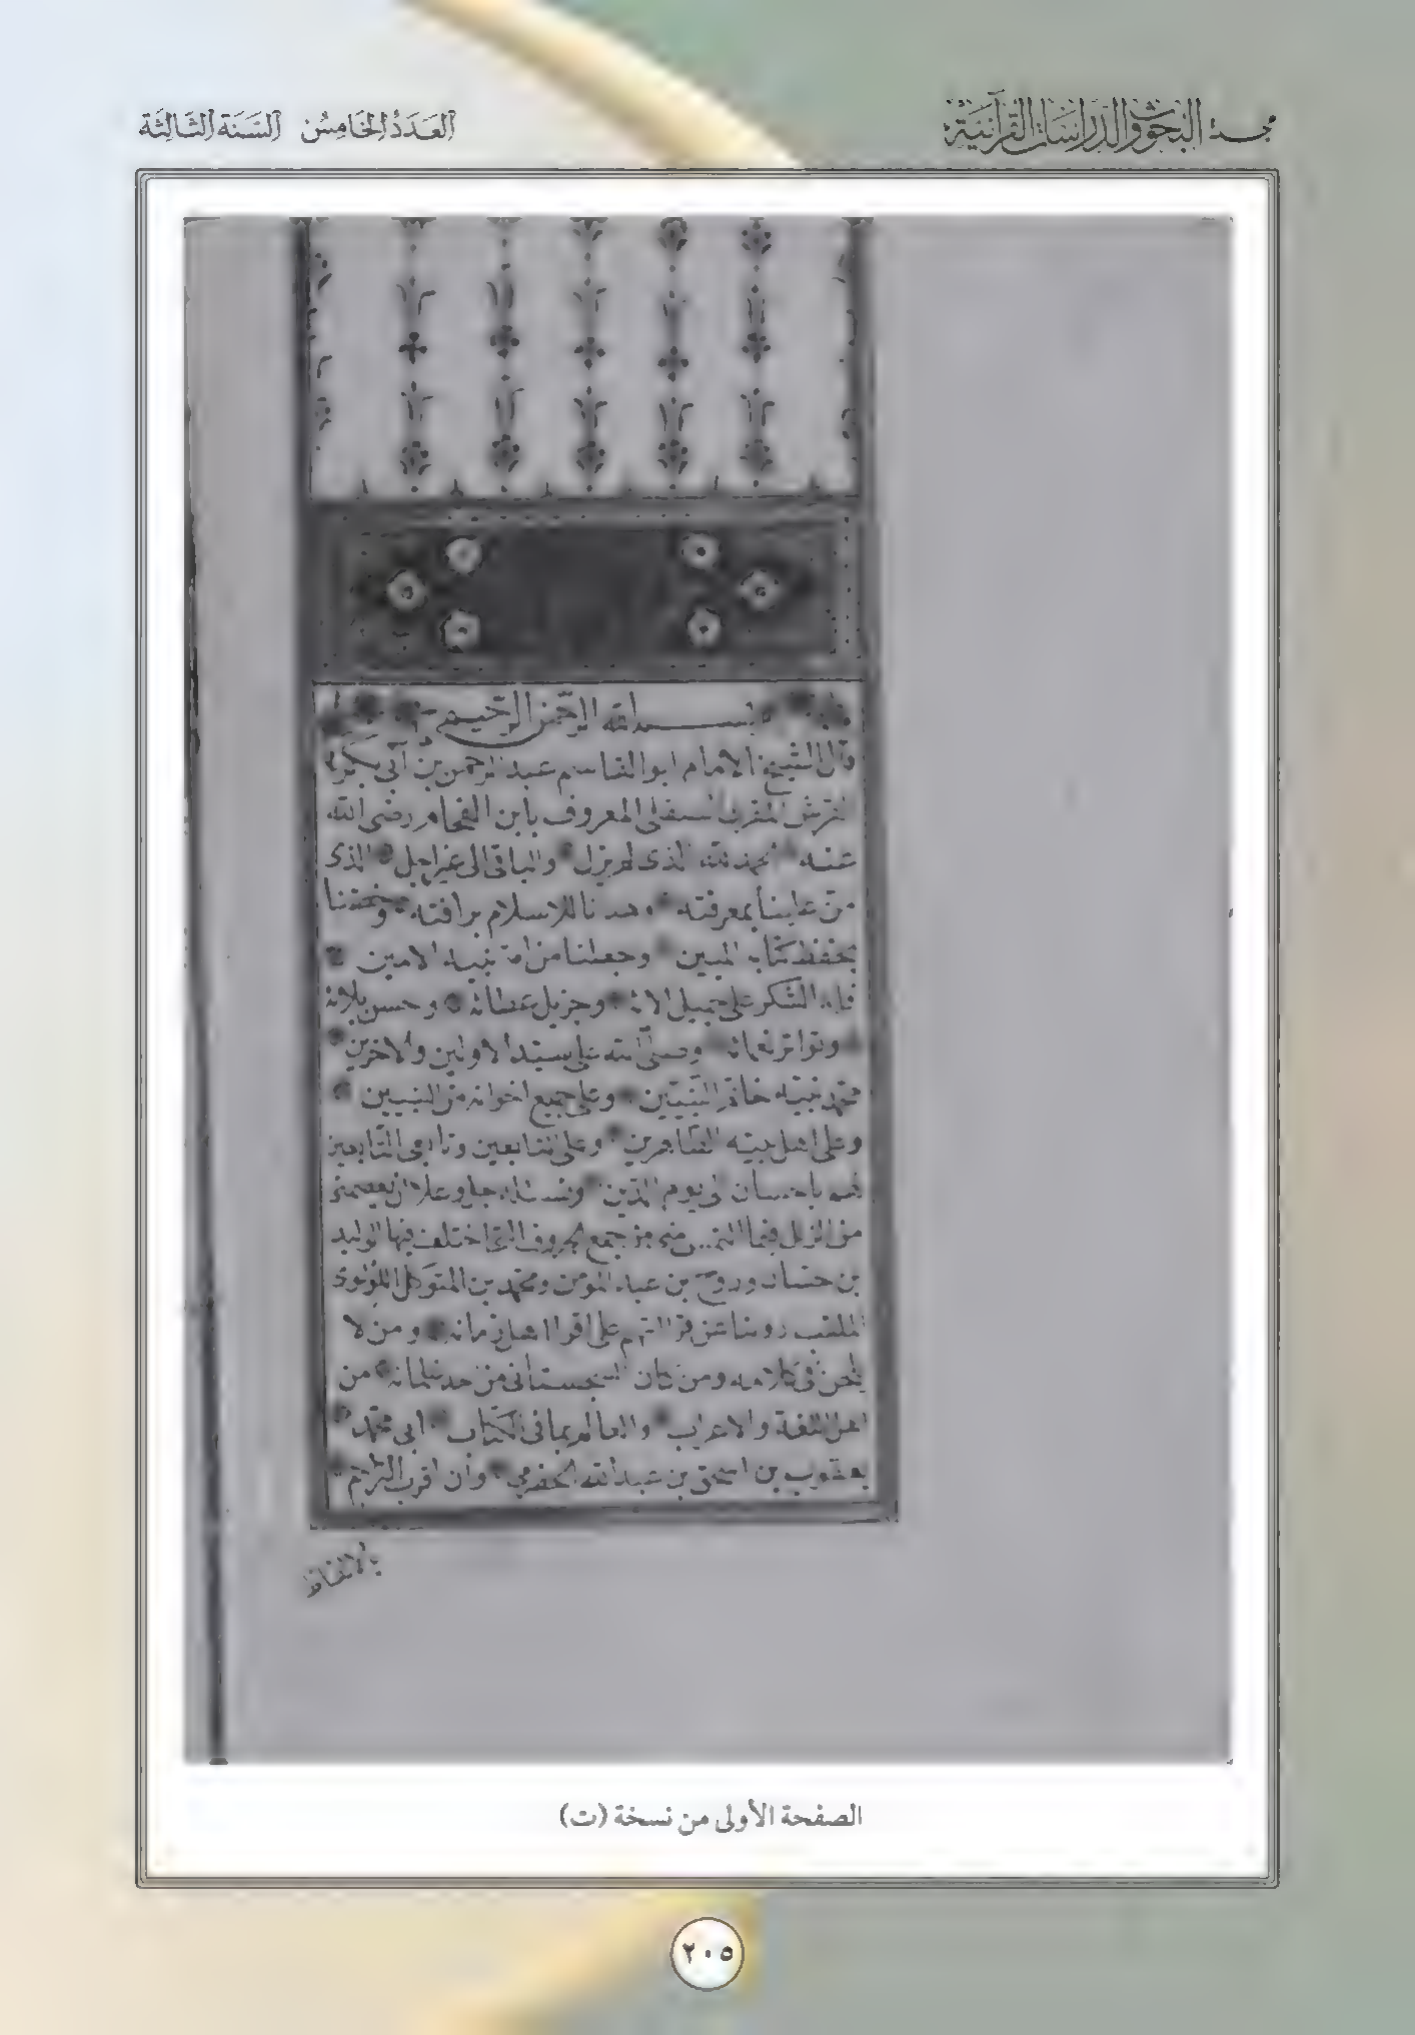 مجلة البحوث والدراسات القرآنية
العدد الخامس السنة الثالثة
بسم الله الرحمن الرحيم
قال الشيخ الامام ابو القاسم عبد الرحمن بن ابي بكر
القرشي المقرئ الصقلي المعروف بابن الفحام رضى الله
عنه الحمد لله الذى لم يزل والباقى الى غير اجل الذى
من علينا بمعرفته وهدانا للاسلام برافته وخصنا
بحفظ كتابه المبين وجعلنا من امة نبيه الامين
فله الشكر على جميل الائه وجزيل عطائه وحسن بلائه
وتواتر نعمائه وصلى الله على سيد الاولين والاخرين
محمد نبيه خاتم النبيين وعلى جميع اخوانه من النبيين
وعلى اهل بيته الطاهرين وعلى التابعين وتابعى التابعين
لهم باحسان الى يوم الدين ونسئله جل وعلا ان يعصمنى
من الزلل فيما التمس منى من جمع الحروف التى اختلف فيها الوليد
بن حسان وروح بن عبد المؤمن ومحمد بن المتوكل اللؤلوى
الملقب رويسا عن قراءتهم على اقرا اهل زمانه ومن لا
يلحن فى كلامه ومن كان السجستانى من احد غلمانه من
اهل اللغة والاعراب والعالم بما فى الكتاب ابى محمد
يعقوب بن اسحق بن عبد الله الحضرمي وان اقرب التراجم
بالالفاظ
الصفحة الأولى من نسخة (ت)
٢٠٥